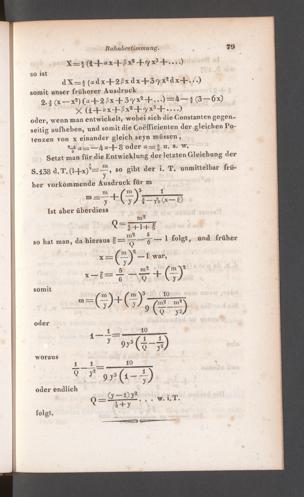 Bahnbestimmung. 79
X=4/3 (1+αx+βx²+γx³+....)
so ist
dX=4/3 (αdx+2βx dx+3γx²dx+..)
somit unser früherer Ausdruck
2.4/3 (x−x²) (α+2βx+3γx²+...)=4−4/3 (3−6x)
×(1+αx+βx²+γx³+....)
oder, wenn man entwickelt, wobei sich die Constanten gegen-
seitig aufheben, und somit die Coëfficienten der gleichen Po-
tenzen von x einander gleich seyn müssen,
α=−4α+8 oder α=6/5 u. s. w.
Setzt man für die Entwicklung der letzten Gleichung der
so gibt der i. T. unmittelbar frü-
her vorkommende Ausdruck für m
Ist aber überdiess
so hat man, da hieraus ξ=m²/Q−5/6−l folgt, und früher
x=(m/y)²−l war,
x−ξ=5/6−m²/Q+(m/y)²
somit
oder
1−1/y=10/9y³(1/Q−1/y²)
woraus
1/Q−1/y²=10/9y³(1−1/y)
oder endlich
w. i. T.
folgt.